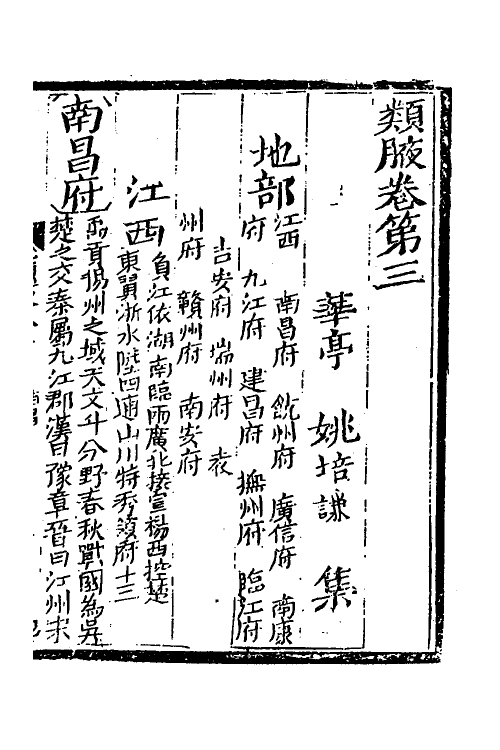 類腋卷第三
華亭 姚培謙 集
地部
江西 南昌府 饒州府 廣信府 南康
府 九江府 建昌府 撫州府 臨江府
吉安府 瑞州府 袁
州府 贛州府 南安府
江西
負江依湖南臨兩廣北接宣楊西控楚
東翼浙水陸四通山川特秀領府十三
南昌府
禹貢楊州之域天文斗分野春秋戰國為吳
楚之交秦屬九江郡漢曰豫章晉曰江州宋